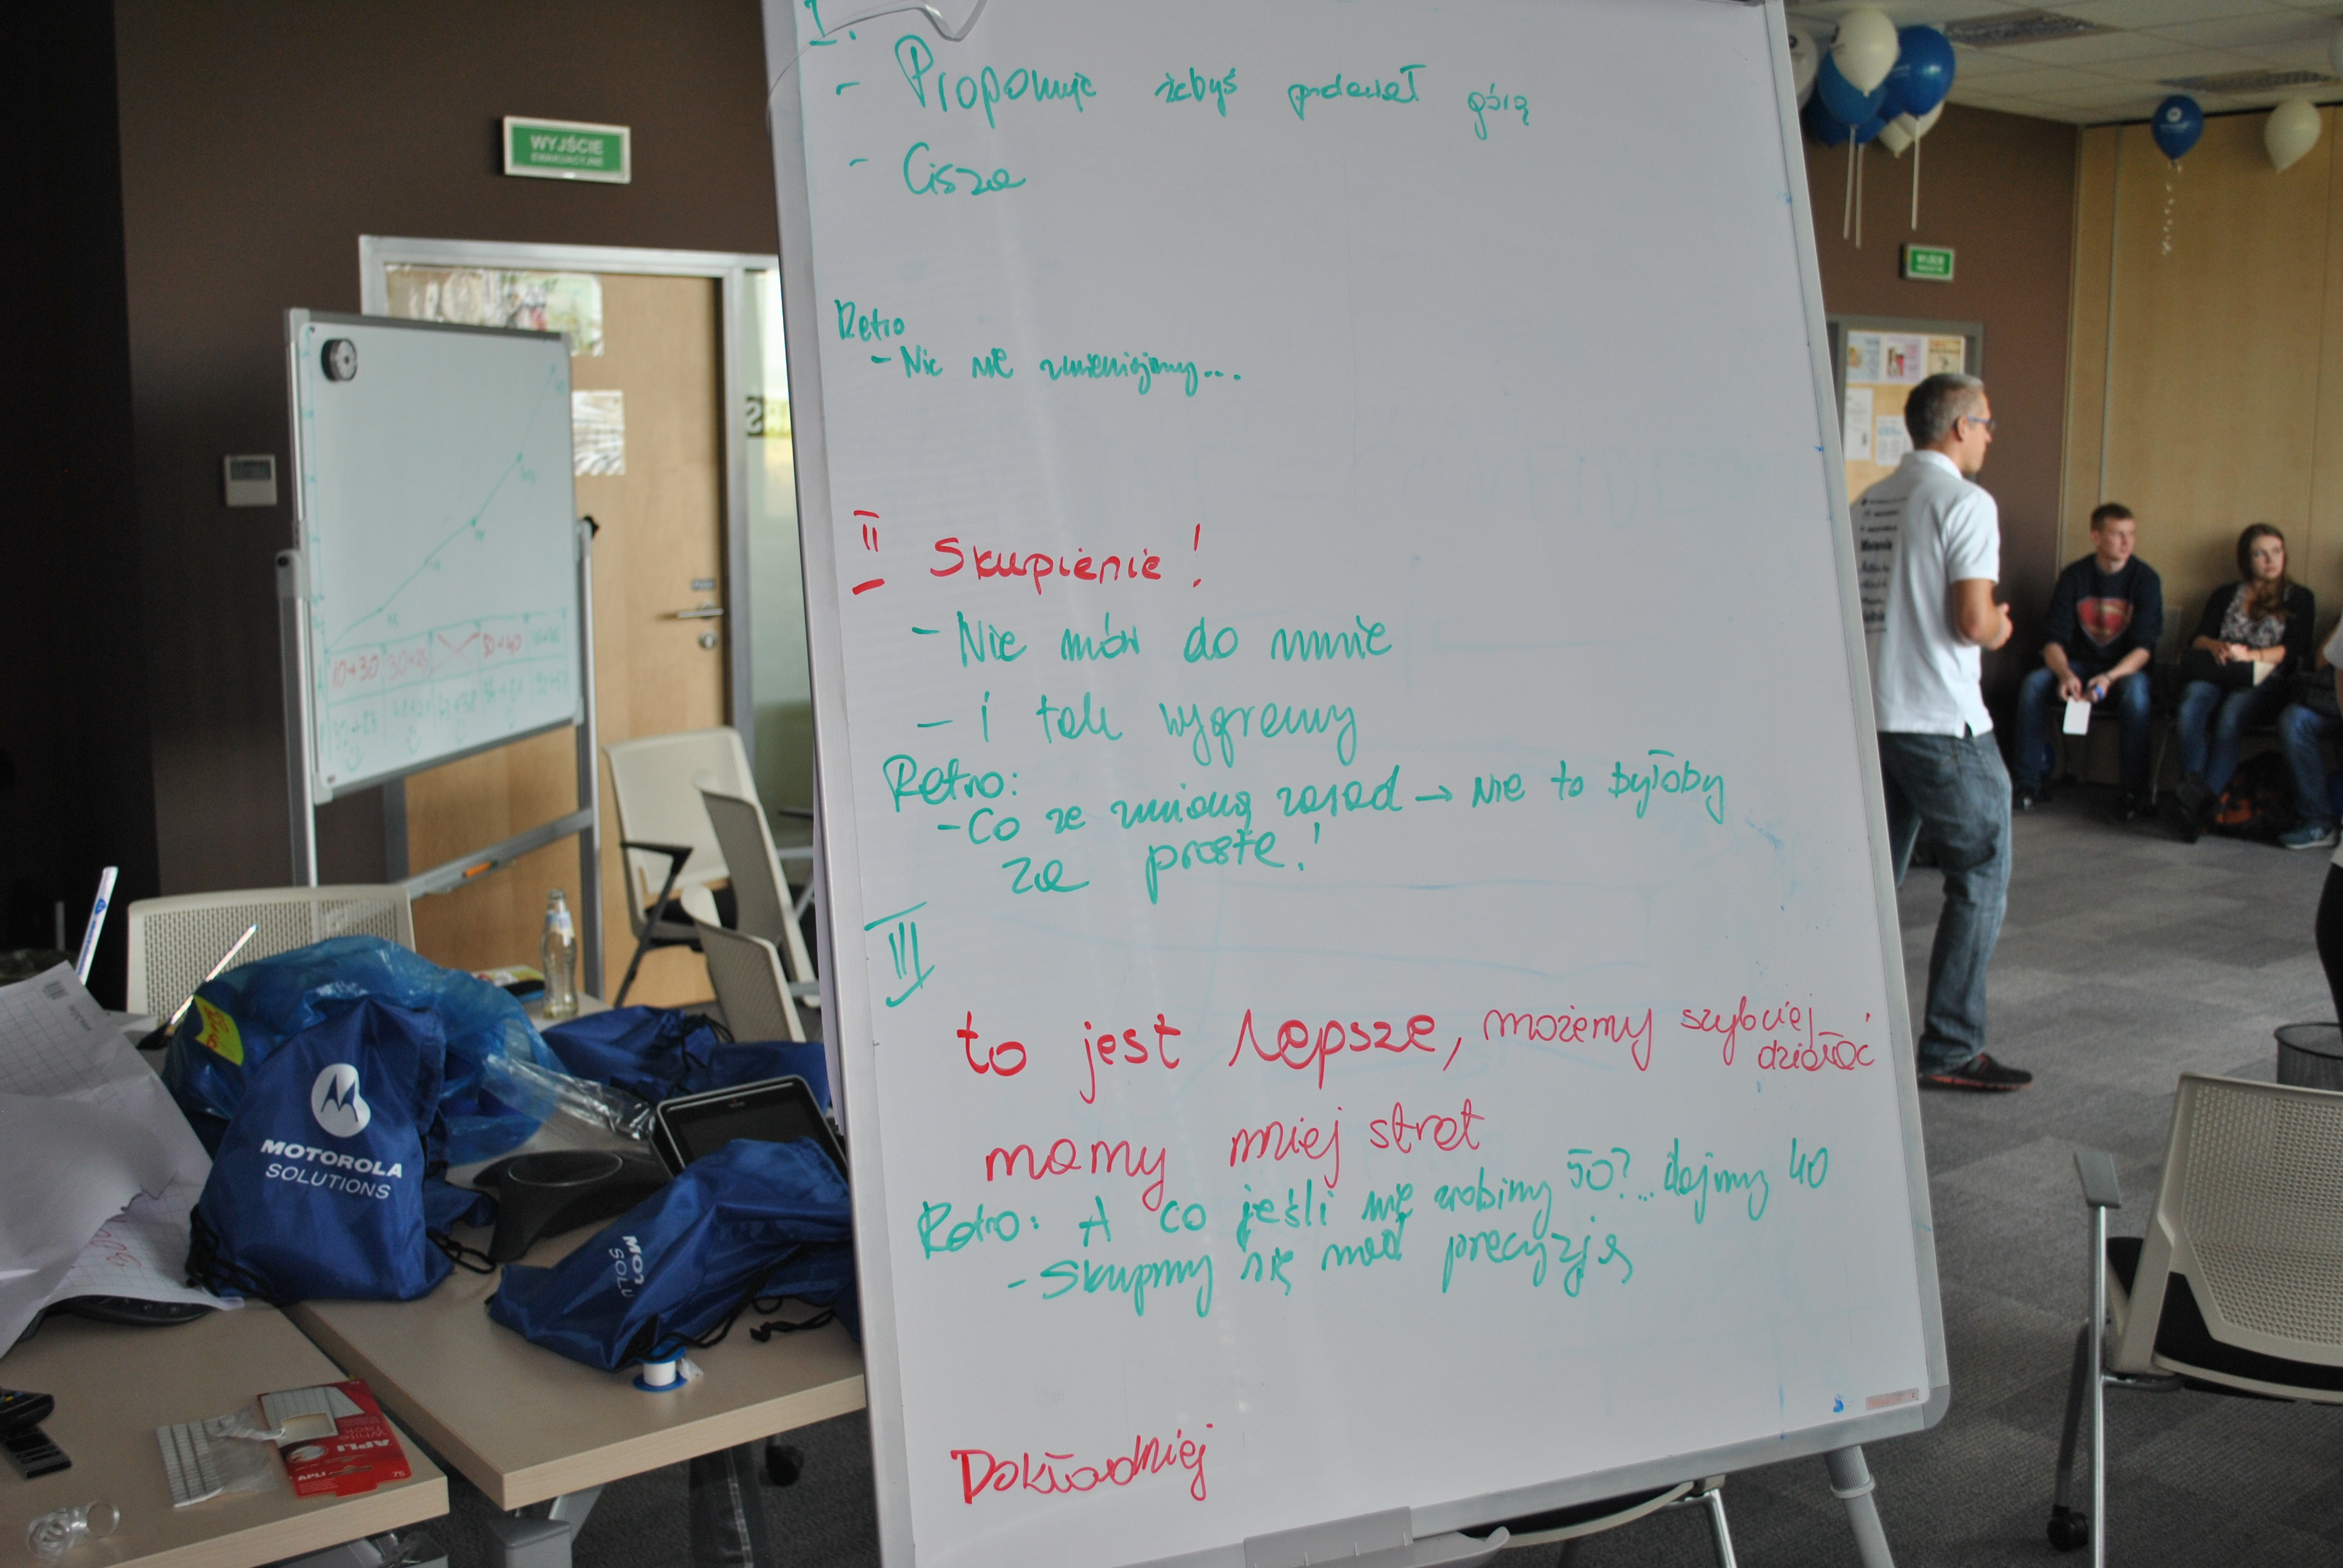 I
- Proponuję żebyś podawał górą
- Cisza
Retro
- Nic nie zmieniajmy...
II Skupienie!
- Nie mów do mnie
- i tak wygramy
Retro:
- Co ze zmianą zasad → Nie to byłoby
za proste!
III
to jest lepsze, możemy szybciej
działać
mamy mniej strat
Retro: A co jeśli nie zrobimy 50?... dajmy 40
- Skupmy się nad precyzją
Dokładniej
WYJŚCIE
EWAKUACYJNE
10+30 30+25
MOTOROLA
SOLUTIONS
MOT
SOLU
APLI
APLI
75
WYJŚCIE